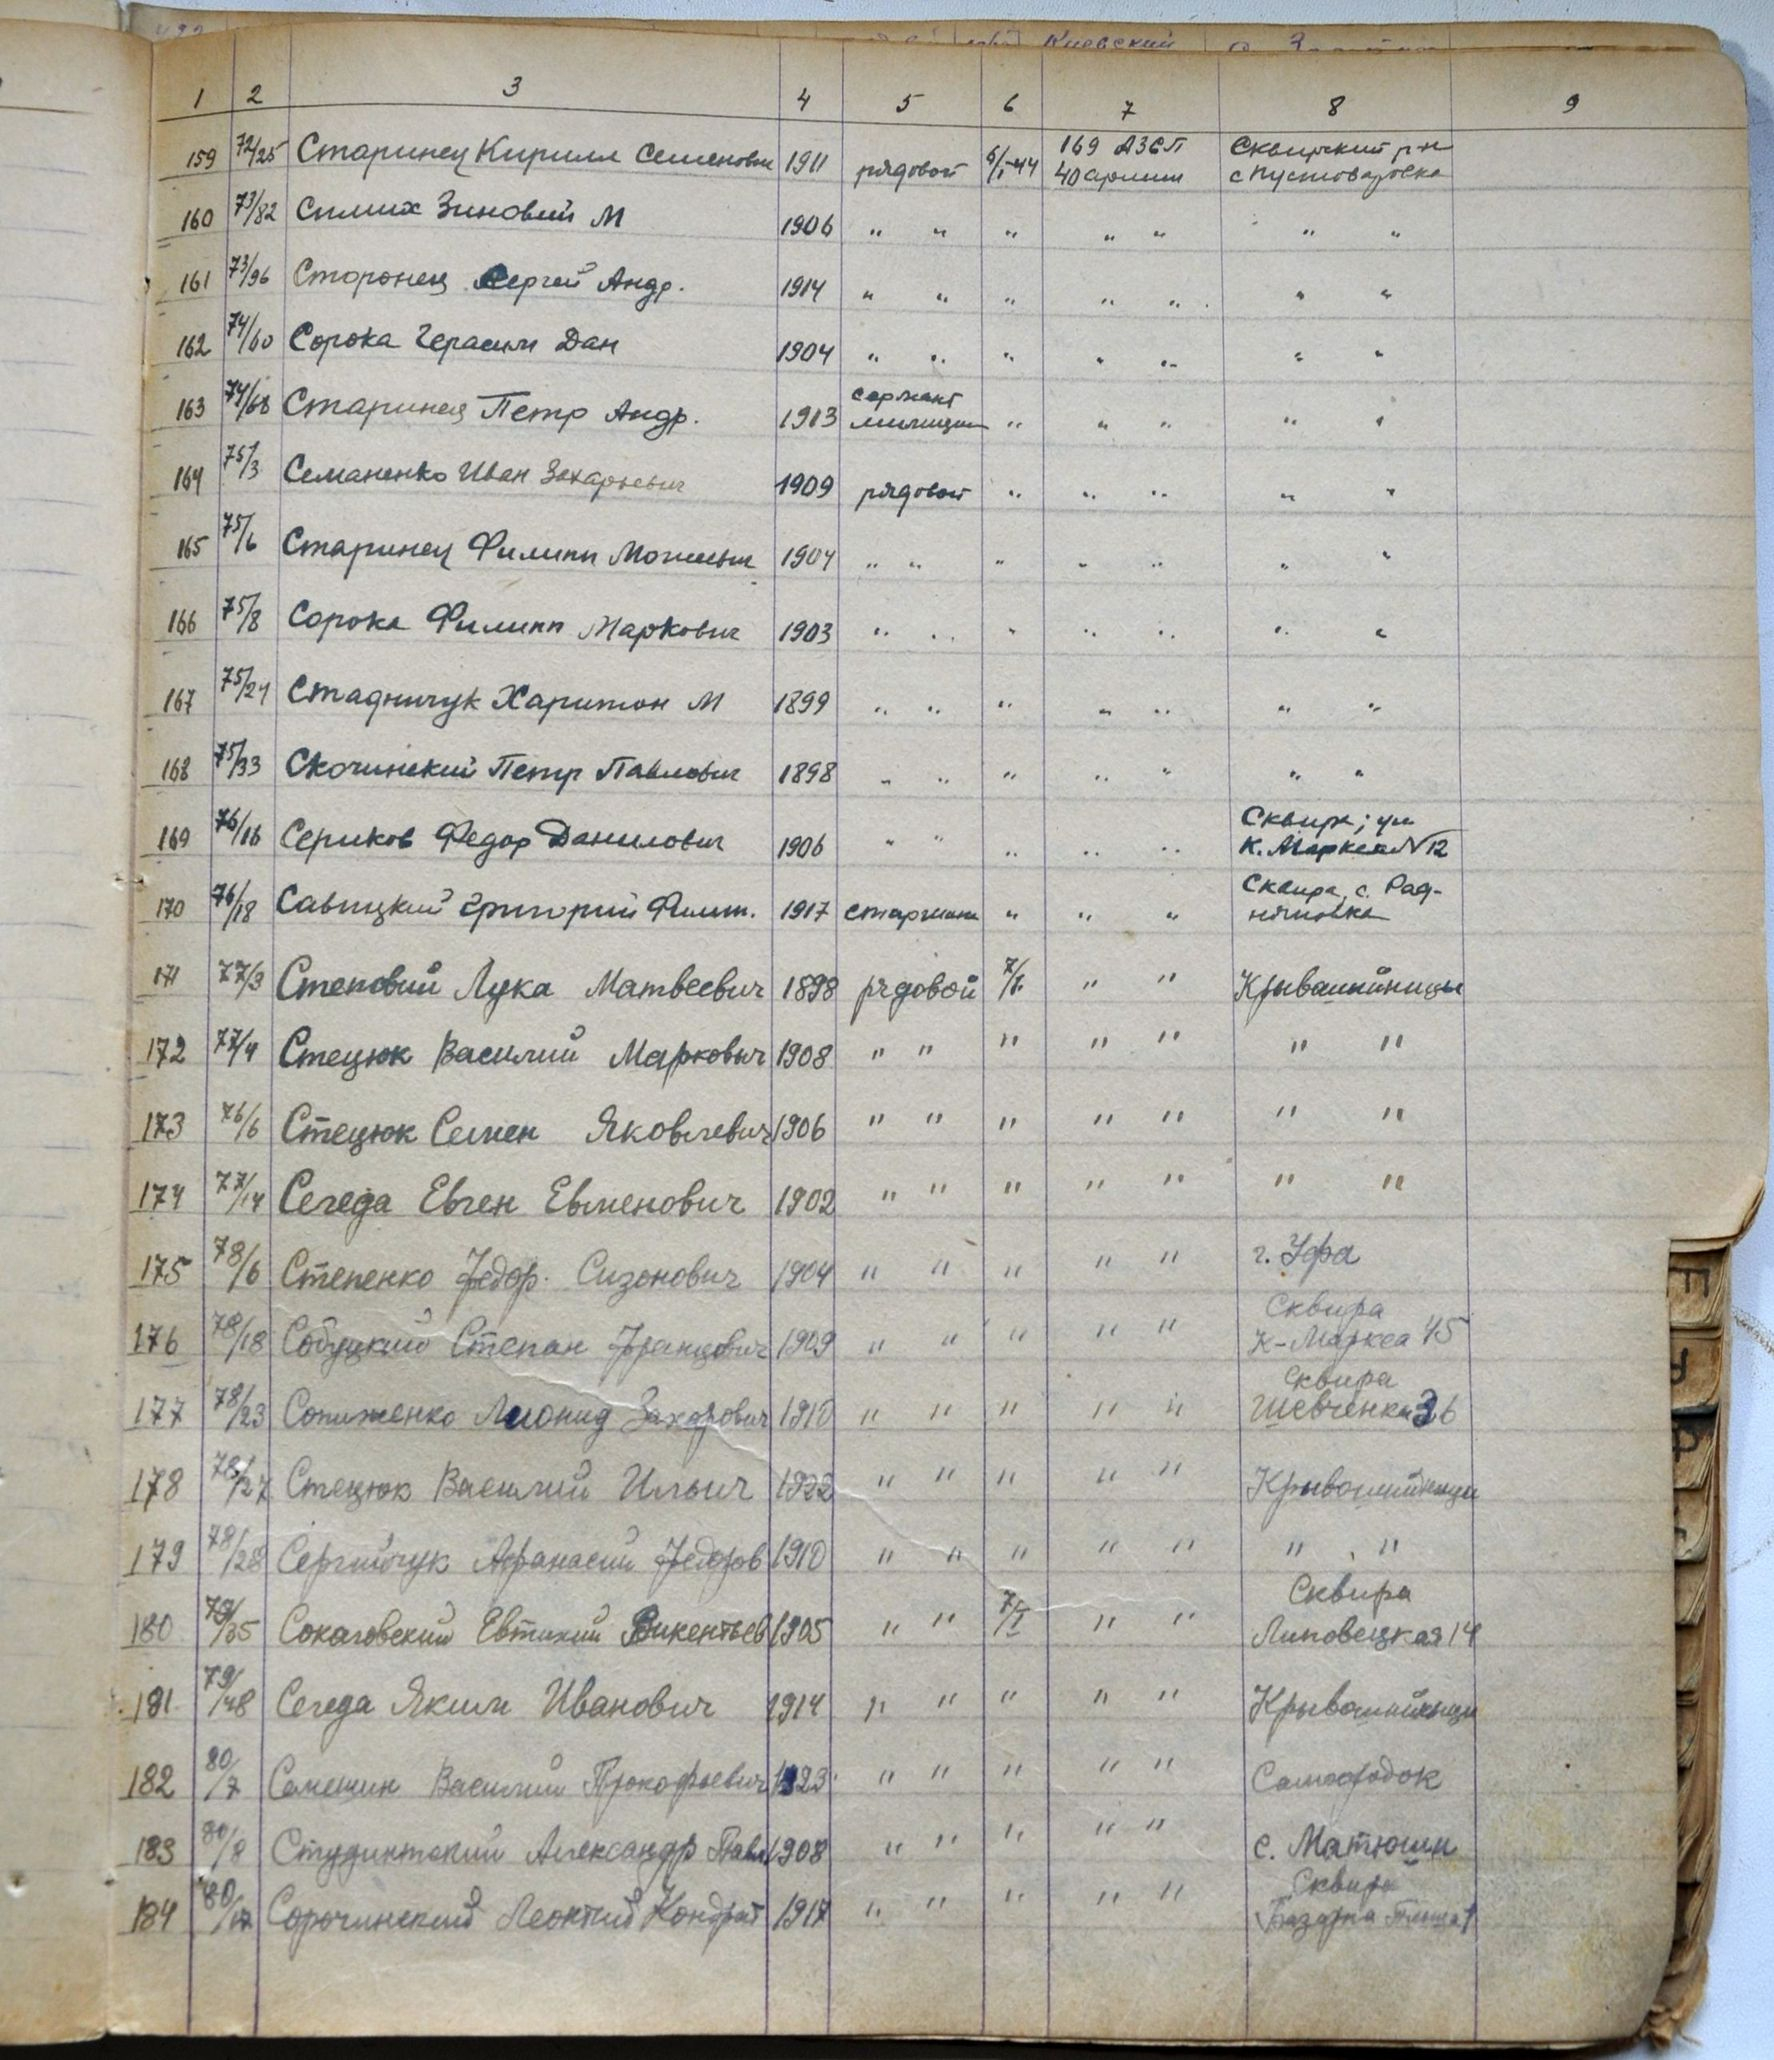 Киевский
1 2 3 4 5 6 7 8 9
159 72/25 Старинец Кирилл Семенович 1911 рядовой 6/I-44 169 АЗСП 40 армии Сквирский р-н с Пустоваровка
160 73/82 Симих Зиновий М 1906 " " " " " " "
161 73/96 Сторонец Сергей Андр. 1914 " " " " " " "
162 74/60 Сорока Герасим Дан 1904 " " " " " " "
163 74/68 Старинец Петр Андр. 1913 сержант милиции " " " " "
164 75/3 Семаненко Иван Захарьевич 1909 рядовой " " " " "
165 75/6 Старинец Филипп Моисеевич 1904 " " " " " " "
166 75/8 Сорока Филипп Маркович 1903 " " " " " " "
167 75/24 Стадничук Харитон М 1899 " " " " " " "
168 75/33 Скочинский Петр Павлович 1898 " " " " " " "
169 76/16 Сериков Федор Данилович 1906 " " " " " Сквира; ул К. Маркса № 12
170 76/18 Савицкий Григорий Филип. 1917 старшина " " " Сквира, с. Рад-
177/3 Степовий Лука Матвеевич 1898 рядовой 7/I " " Крывошийницы
172 77/4 Стецюк Василий Маркович 1908 " " " " " " "
173 76/6 Стецюк Семен Яковлевич 1906 " " " " " " "
174 77/14 Сегеда Евген Евменович 1902 " " " " " " "
175 78/6 Степенко Федор. Сизонович 1904 " " " " " г. Уфа
176 78/18 Собуцкий Степан Францович 1909 " " " " " Сквира К-Маркса 45
177 78/23 Сопиженко Лионид Захарович 1910 " " " " " Сквира Шевченка 36
178 78/27 Стецюк Василий Ильич 1922 " " " " " Крывошийници
179 78/28 Сергийчук Афанасий Федоров 1910 " " " " " " "
180 79/35 Сокаговский Евтихий Викентьев 1905 " " 7/I " " Сквира Липовецкая 14
181 79/48 Сегеда Яким Иванович 1914 " " " " " Крывошийници
182 80/7 Семешин Василий Прокофьевич 1923 " " " " " Самгородок
183 80/8 Александр Павл 1908 " " " " " с. Матюши
184 80/17 Сорочинский Леонтий Кондрат 1917 " " " " " Сквира Базарна